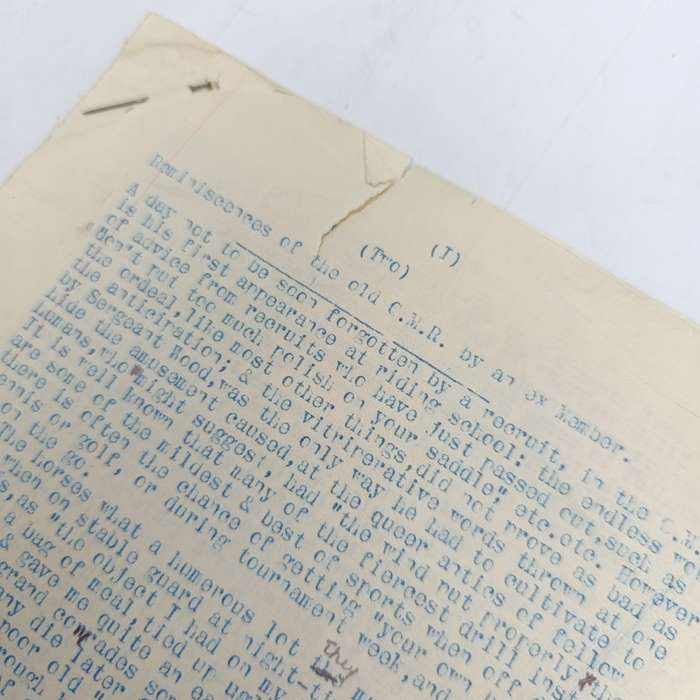 (I)
(Two)
Reminiscences of the old C.M.R. by an ex Member.
A day not to be soon forgotten by a recruit, in the C.M.
is his first appearance at riding school: the endless vol
of advice from recruits who have just passed out, such as
"don't put too much polish on your saddle" etc.etc. However
the ordeal, like most other things, did not prove as bad as
the anticipation; & the vitriperative words thrown at one
by Sergeant Wood, was the only way he had to cultivate to
hide the amusement caused, at the queer antics of fellow
humans, who might suggest, had "the wind put properly
It is well known that many of the fiercest drill inst
are some of the mildest & best of sports when off
there is often the chance of getting "your own
ennis or golf, or during tournament week, and
on the go.
The horses what a humorous lot they m
when on stable guard at night-tim
s, as "the object I had on my
a bag of meal, tied up ugl
& gave me quite an es
grand comrades som
any die later
poor old "
rough